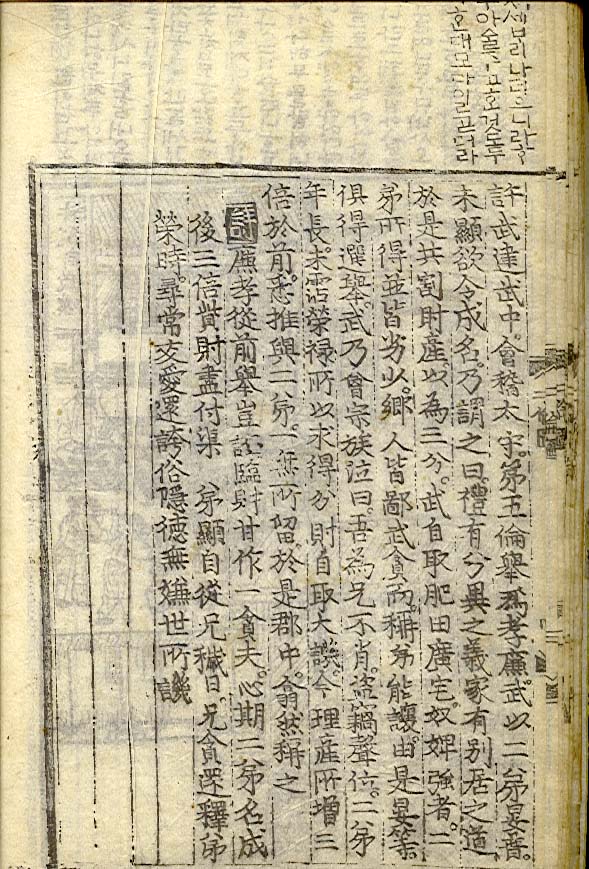 호대모다일ᄏᆞᆮ더라
許武建武中。會稽太守。第五倫舉爲孝廉。武以二弟晏普。
未顯欲令成名。乃謂之曰。禮有分異之義家有別居之道
於是共割財產以為三分。武自取肥田廣宅。奴婢強者。二
弟所得並皆劣少。鄉人皆鄙武貪而。稱弟能讓。由是晏等。
俱得選舉。武乃會宗族泣曰。吾為兄不肖。盜竊聲位。二弟
年長。未霑榮祿所以求得分財自取大譏。今理產所增三
倍於前。悉推與二弟。一無所留。於是郡中。翕然稱之
詩 廉孝從前舉豈誣臨財甘作一貪夫。心期二弟名成
後三倍貲財盡付渠 弟顯自從兄穢日兄貪還釋弟
榮時。尋常友愛還誇俗隱德無嫌世所譏